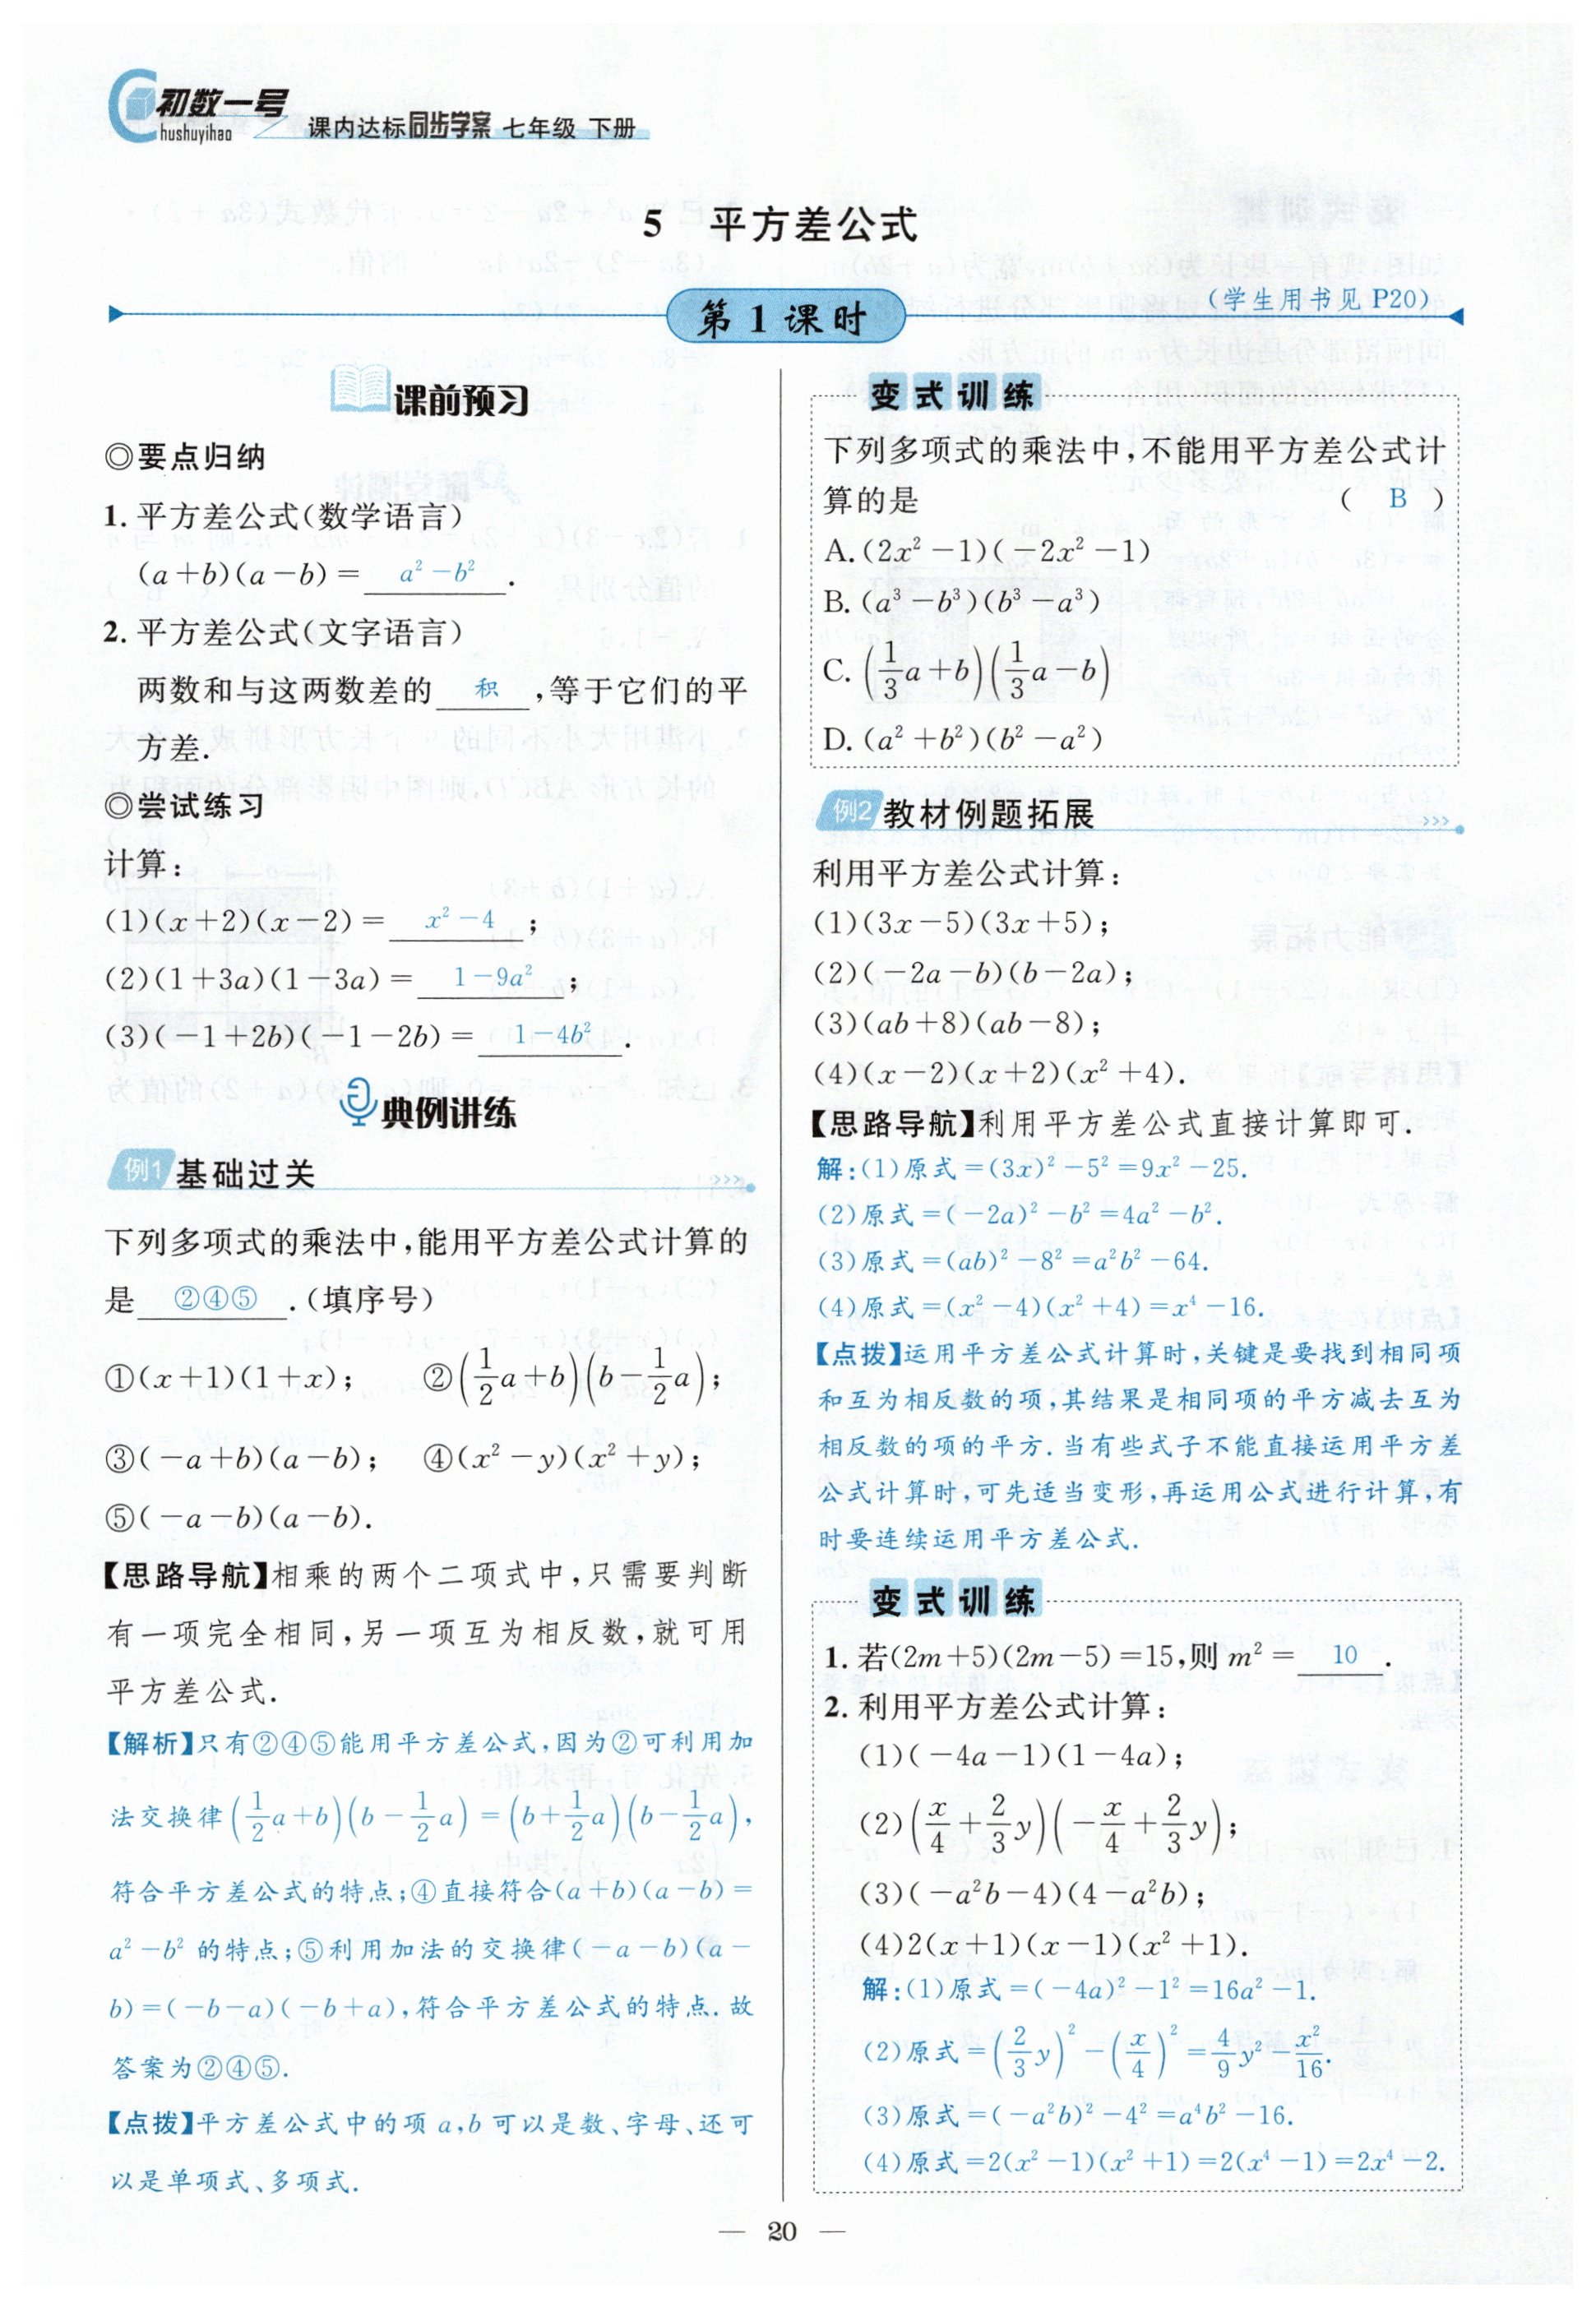 初数一号
hushuyihao
课内达标同步学案 七年级 下册
5 平方差公式
第1课时
(学生用书见 P20)
课前预习
◎要点归纳
1. 平方差公式(数学语言)
(a+b)(a-b)= a²-b² .
2. 平方差公式(文字语言)
两数和与这两数差的 积 ,等于它们的平
方差.
◎尝试练习
计算:
(1)(x+2)(x-2)= x²-4 ;
(2)(1+3a)(1-3a)= 1-9a² ;
(3)(-1+2b)(-1-2b)= 1-4b² .
典例讲练
例1 基础过关
下列多项式的乘法中,能用平方差公式计算的
是 ②④⑤ .(填序号)
①(x+1)(1+x); ②(1/2a+b)(b-1/2a);
③(-a+b)(a-b); ④(x²-y)(x²+y);
⑤(-a-b)(a-b).
【思路导航】相乘的两个二项式中,只需要判断
有一项完全相同,另一项互为相反数,就可用
平方差公式.
【解析】只有②④⑤能用平方差公式,因为②可利用加
法交换律(1/2a+b)(b-1/2a)=(b+1/2a)(b-1/2a),
符合平方差公式的特点;④直接符合(a+b)(a-b)=
a²-b² 的特点;⑤利用加法的交换律(-a-b)(a-
b)=(-b-a)(-b+a),符合平方差公式的特点.故
答案为②④⑤.
【点拨】平方差公式中的项 a,b 可以是数、字母、还可
以是单项式、多项式.
变式训练
下列多项式的乘法中,不能用平方差公式计
算的是 ( B )
A. (2x²-1)(-2x²-1)
B. (a³-b³)(b³-a³)
C. (1/3a+b)(1/3a-b)
D. (a²+b²)(b²-a²)
例2 教材例题拓展
利用平方差公式计算:
(1)(3x-5)(3x+5);
(2)(-2a-b)(b-2a);
(3)(ab+8)(ab-8);
(4)(x-2)(x+2)(x²+4).
【思路导航】利用平方差公式直接计算即可.
解:(1)原式=(3x)²-5²=9x²-25.
(2)原式=(-2a)²-b²=4a²-b².
(3)原式=(ab)²-8²=a²b²-64.
(4)原式=(x²-4)(x²+4)=x⁴-16.
【点拨】运用平方差公式计算时,关键是要找到相同项
和互为相反数的项,其结果是相同项的平方减去互为
相反数的项的平方.当有些式子不能直接运用平方差
公式计算时,可先适当变形,再运用公式进行计算,有
时要连续运用平方差公式.
变式训练
1. 若(2m+5)(2m-5)=15,则 m²= 10 .
2. 利用平方差公式计算:
(1)(-4a-1)(1-4a);
(2)(x/4+2/3y)(-x/4+2/3y);
(3)(-a²b-4)(4-a²b);
(4)2(x+1)(x-1)(x²+1).
解:(1)原式=(-4a)²-1²=16a²-1.
(2)原式=(2/3y)²-(x/4)²=4/9y²-x²/16.
(3)原式=(-a²b)²-4²=a⁴b²-16.
(4)原式=2(x²-1)(x²+1)=2(x⁴-1)=2x⁴-2.
— 20 —